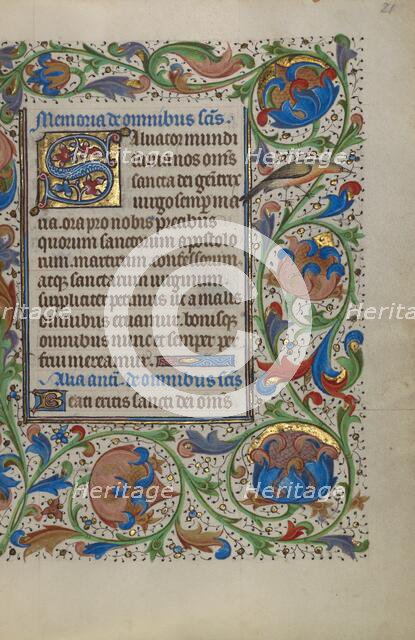 21
Memoria de omnibus scis
Salvator mundi
salva nos oms
sancta dei genitrix
virgo semp ma
ria. ora pro nobis precibus
quorum sanctorum apostolo
rum. martirum confessorum
atq; sanctarum virginum
simpliciter petimus ut a malis
omnibus eruamur. bonisq;
omnibus nunc et semper per
frui mereamur.
Alia anti. de omnibus scis
Beati eritis sancti dei oms
Heritage
Images